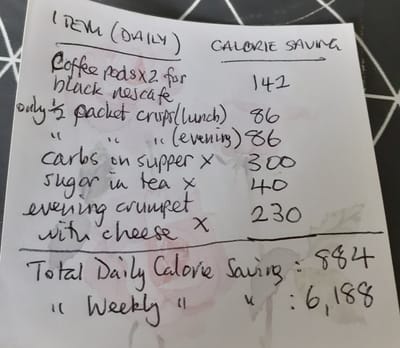 ITEM (DAILY) CALORIE SAVING
Coffee pods x2 for
black nescafe 142
only 1/2 packet crisps (lunch) 86
" " " (evening) 86
carbs on supper x 300
sugar in tea x 40
evening crumpet
with cheese x 230
Total Daily Calorie Saving : 884
" Weekly " " : 6,188